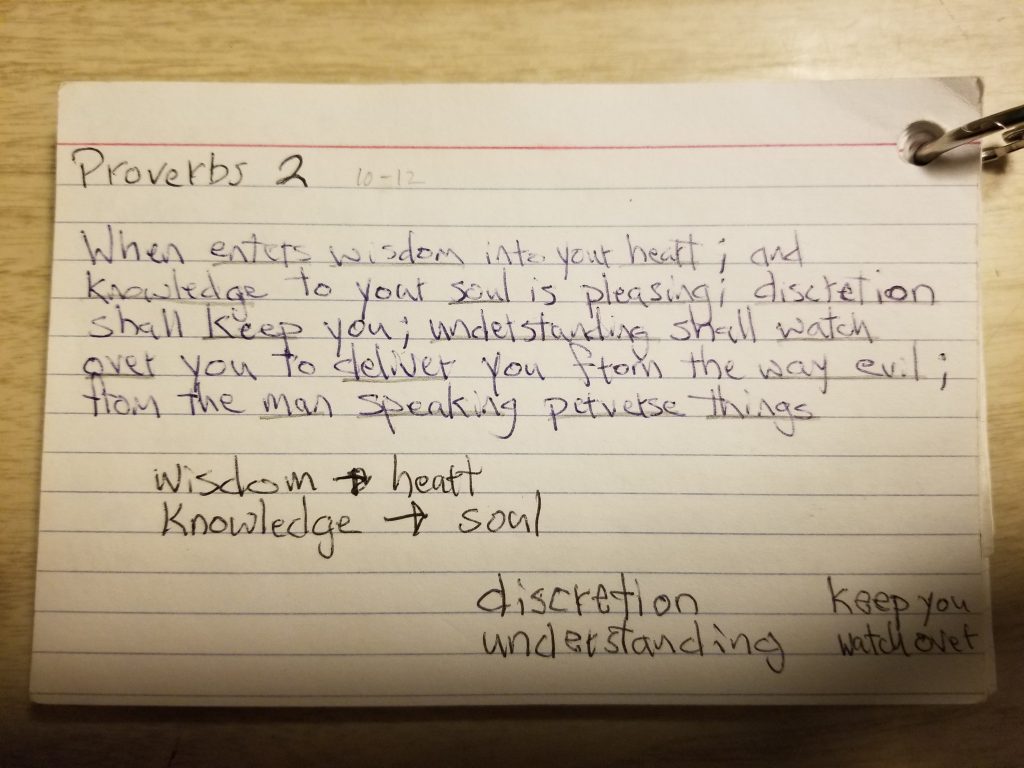 Proverbs 2 10-12
When enters wisdom into your heart; and
knowledge to your soul is pleasing; discretion
shall keep you; understanding shall watch
over you to deliver you from the way evil;
from the man speaking perverse things
Wisdom → heart
Knowledge → soul
discretion keep you
understanding watch over